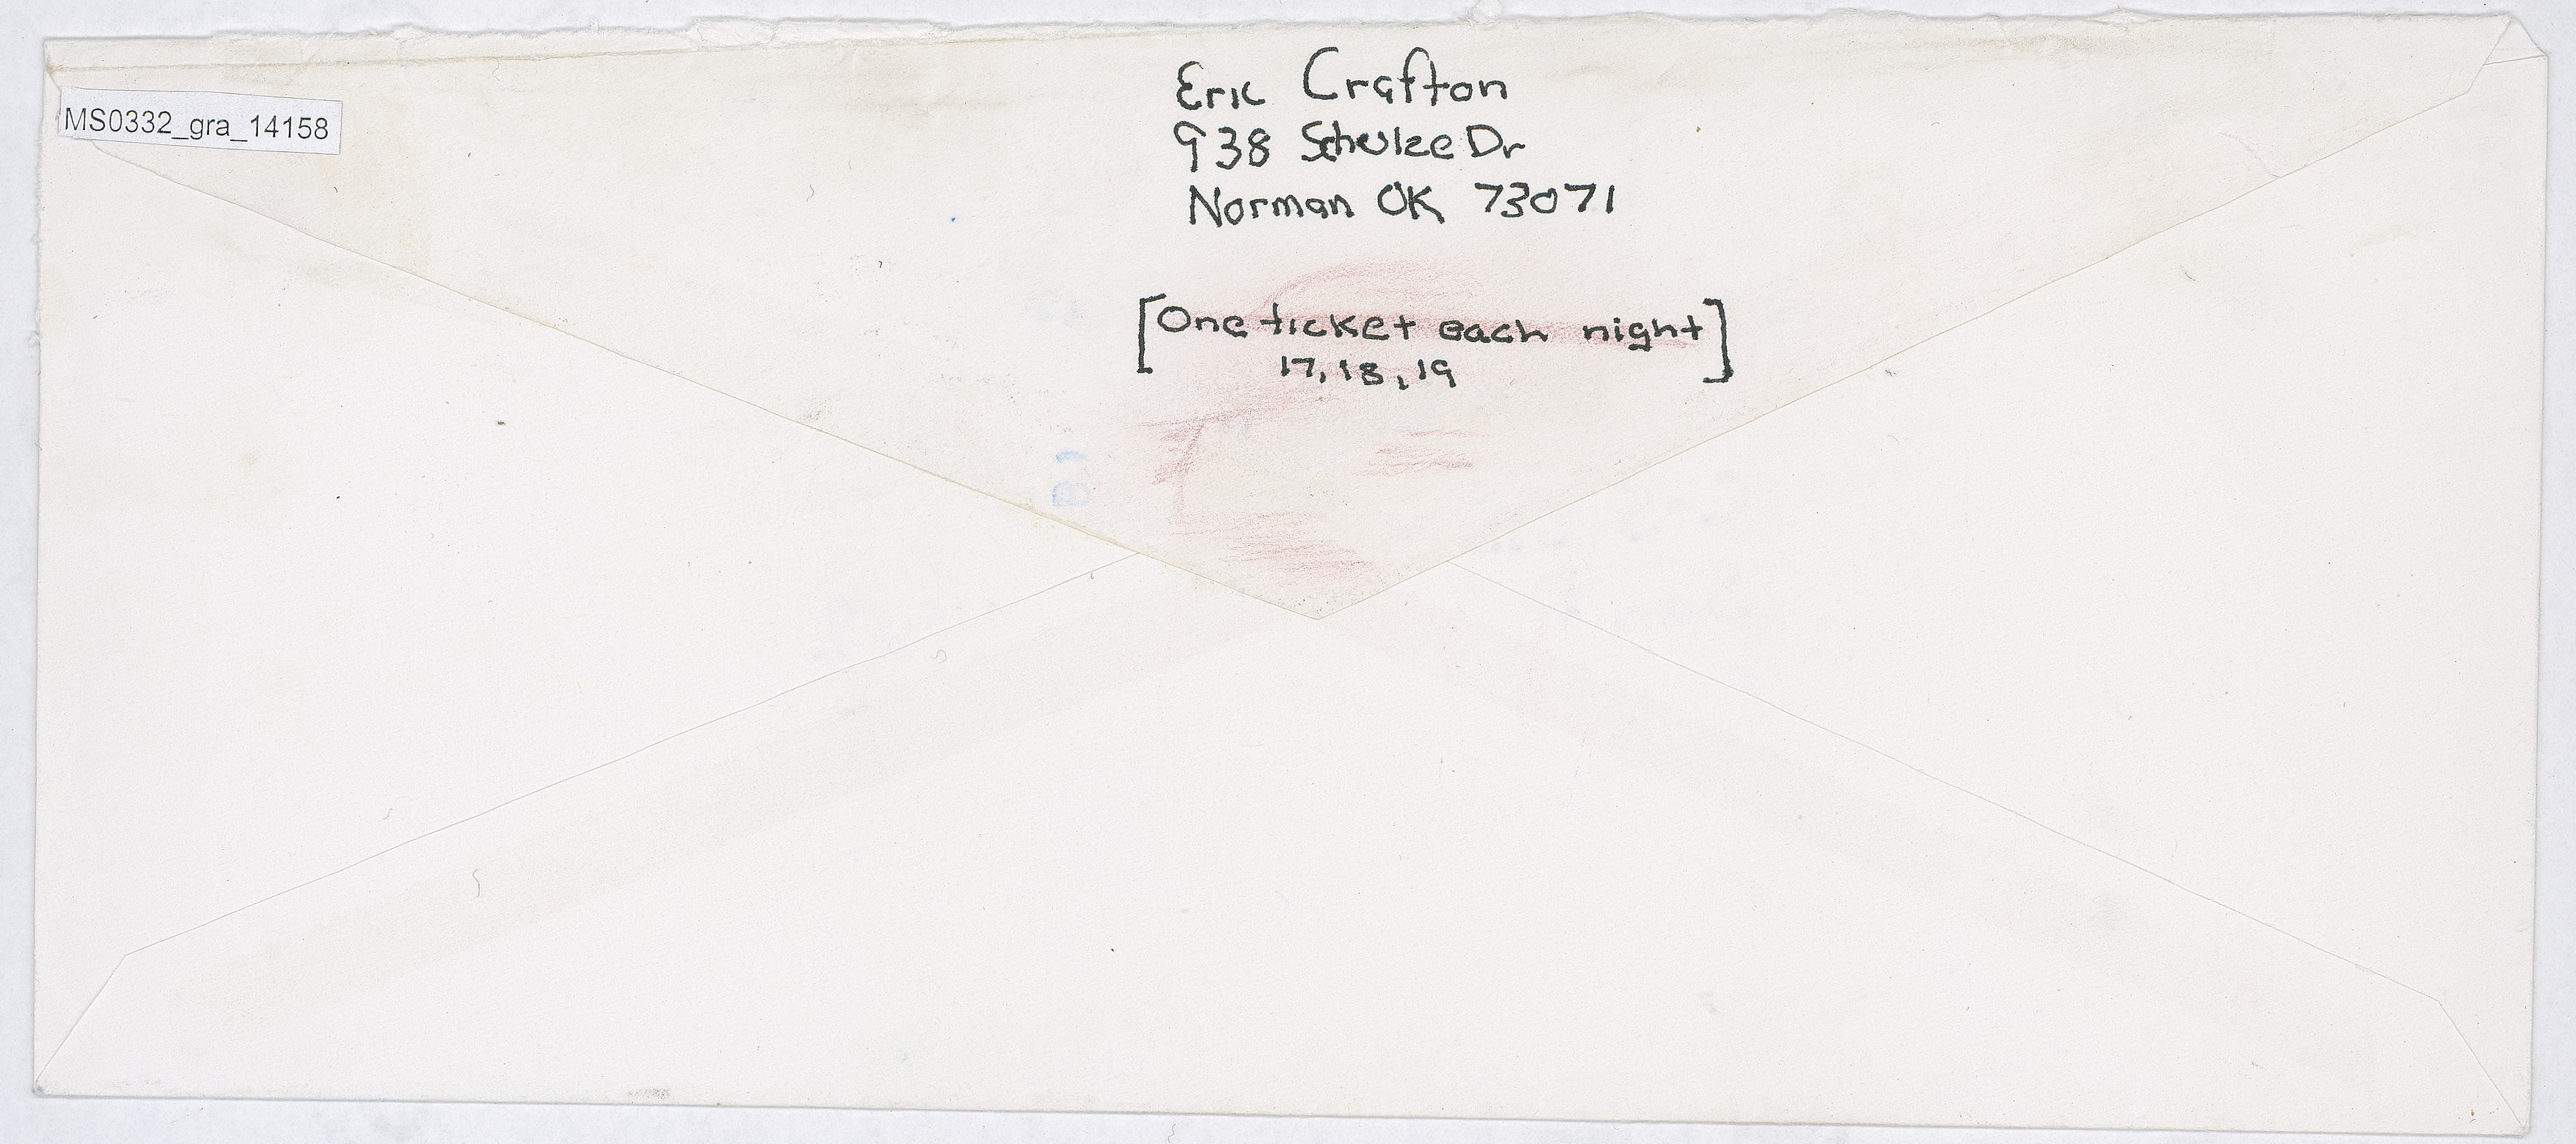 MS0332_gra_14158
Eric Crafton
938 Schulze Dr
Norman OK 73071
[One ticket each night]
17, 18, 19